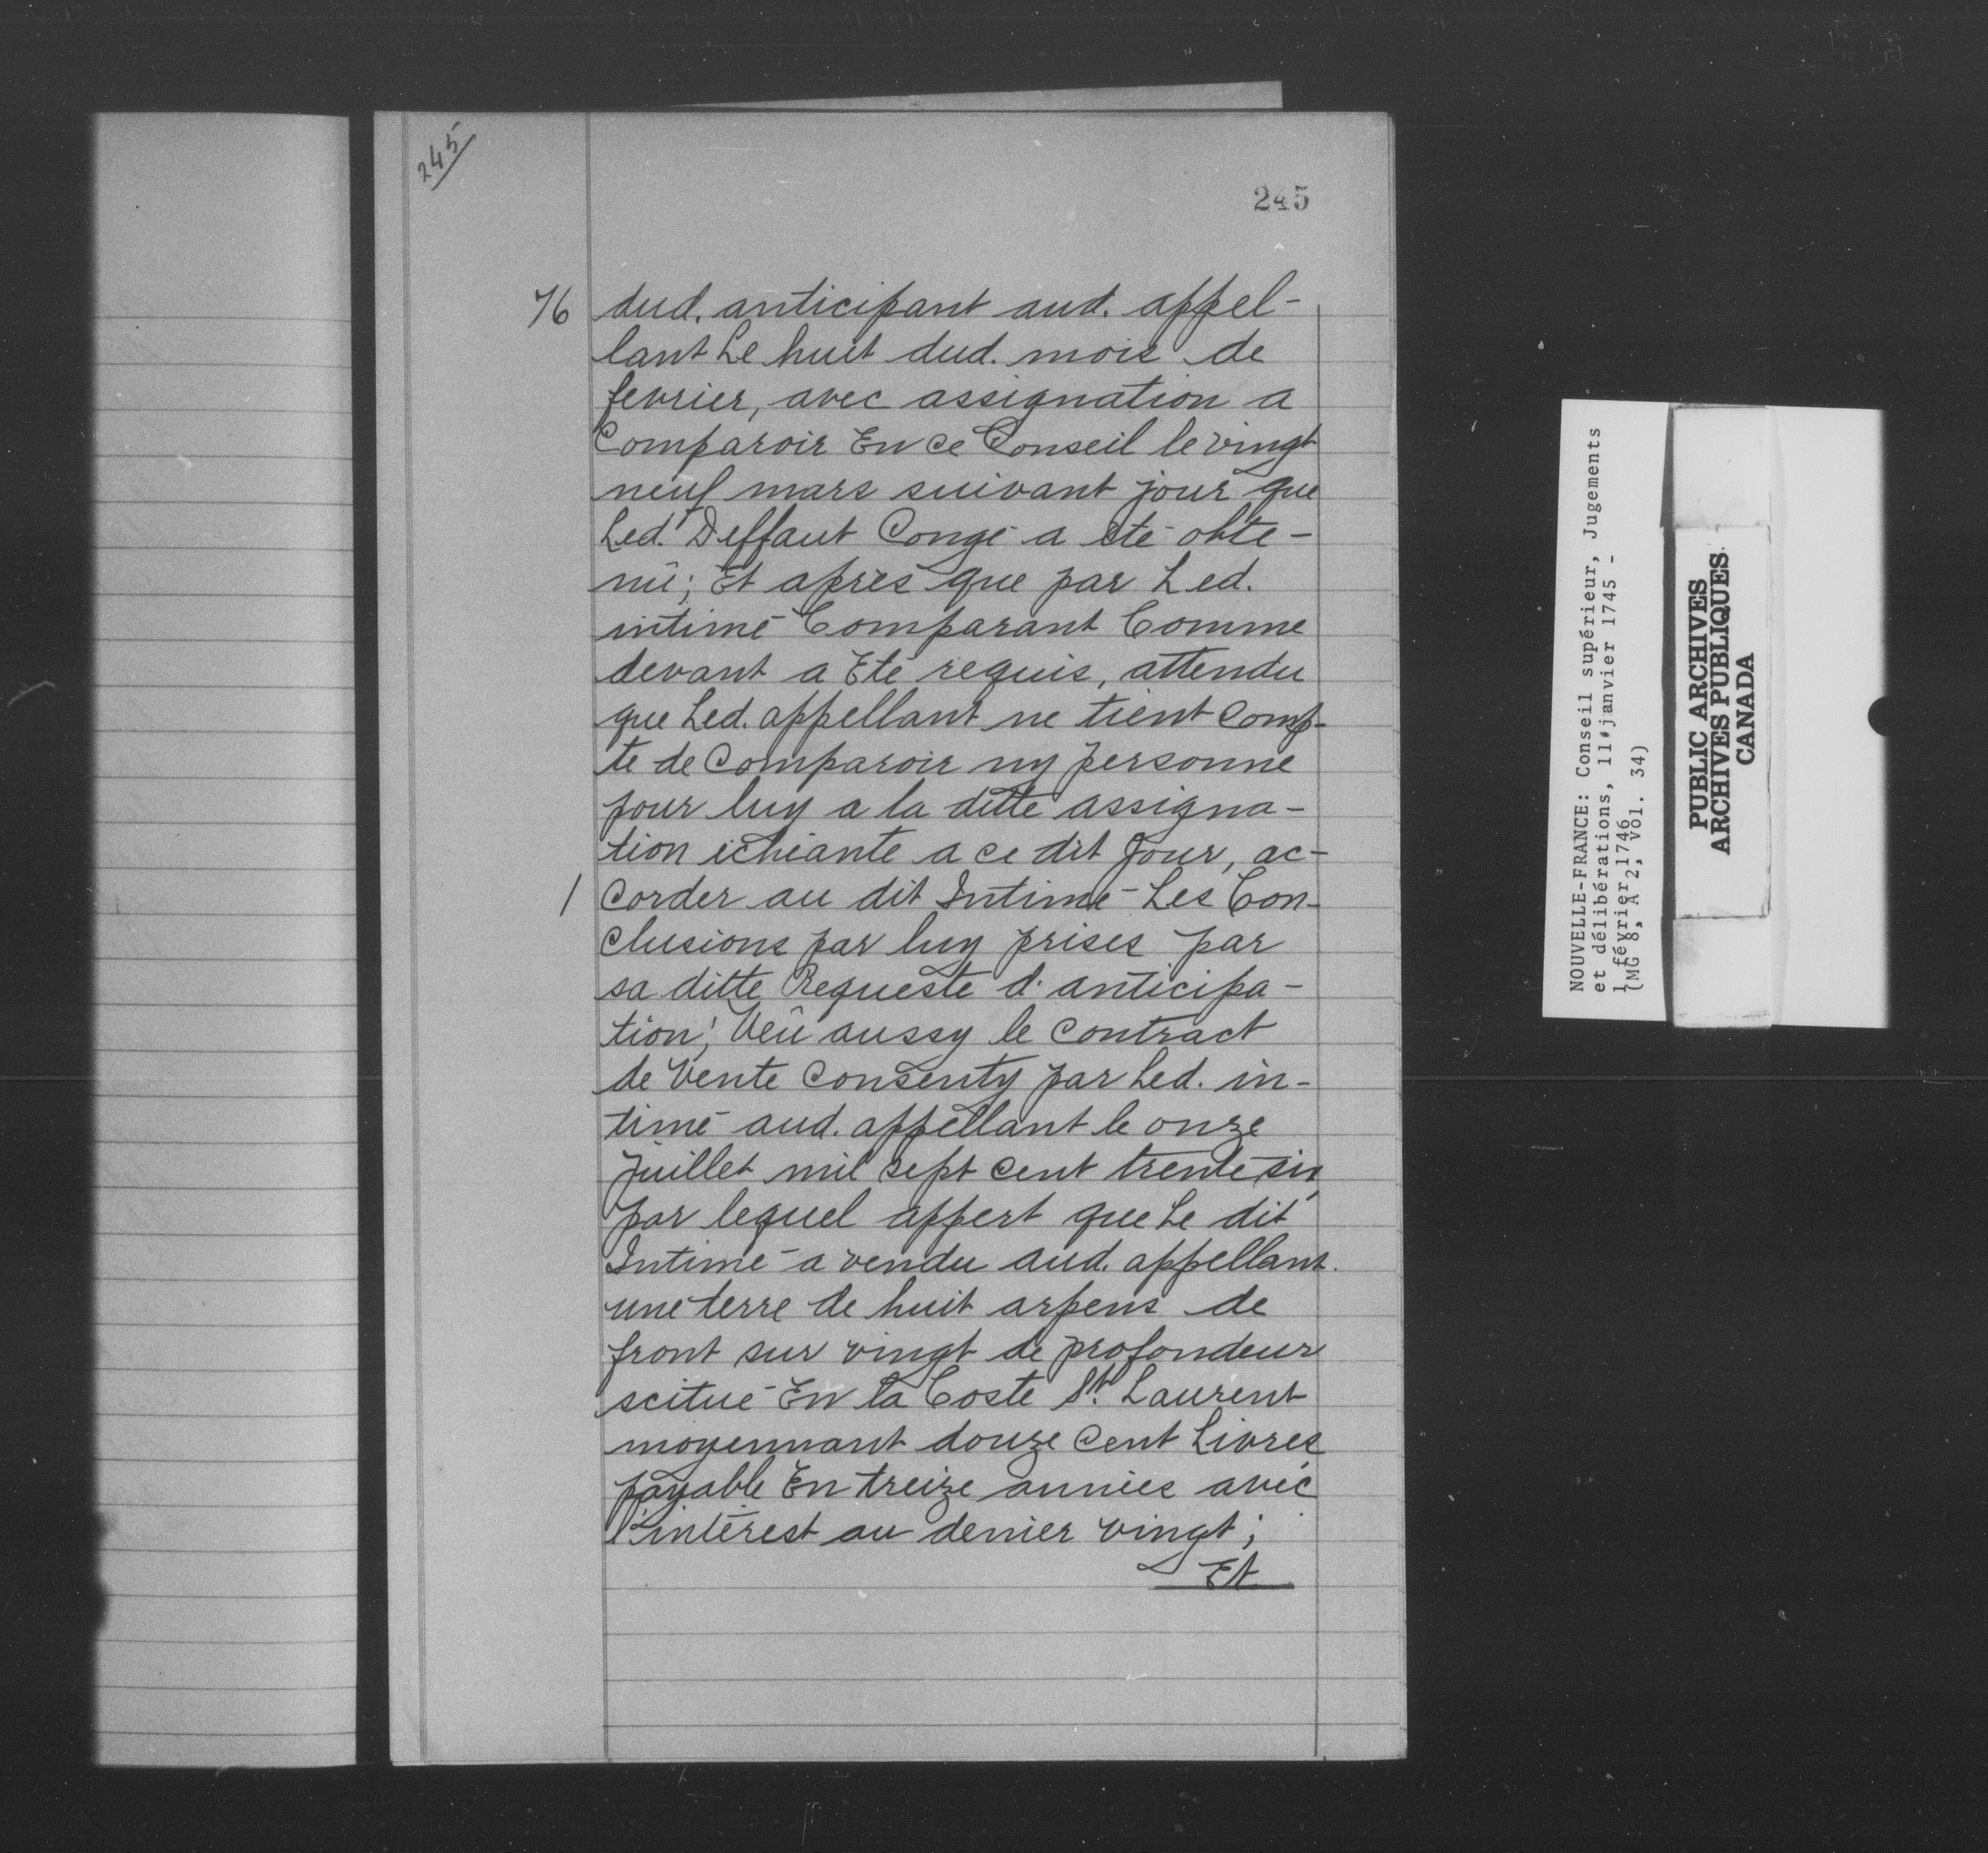 245
245
76 dud. anticipant aud. appel-
lant Le huit dud. mois de
fevrier, avec assignation a
Comparoir En ce Conseil le vingt
neuf mars suivant jour que
Led. Deffaut Congé a eté obte-
nû; Et aprés que par Led.
intimé Comparant Comme
devant a Eté requis, attendu
que Led. appellant ne tient Comp-
te de Comparoir ny personne
pour luy a la ditte assigna-
tion écheante a ce dit Jour, ac-
1 corder au dit Intimé Les Con-
clusions par luy prises par
sa ditte Requeste d'anticipa-
tion; Veû aussy le contract
de Vente Consenty par Led. in-
timé aud. appellant le onze
Juillet mil sept cent trente six
par lequel appert que Le dit
Intimé a vendu aud. appellant
une terre de huit arpens de
front sur vingt de profondeur
scitué En la Coste St. Laurent
moyennant douze Cent Livres
payable En treize années avec
l'intérest au denier vingt;
Et
NOUVELLE-FRANCE: Conseil supérieur, Jugements
et délibérations, 11 janvier 1745 -
1 février 1746
(MG 8, A 2, vol. 34)
PUBLIC ARCHIVES
ARCHIVES PUBLIQUES
CANADA